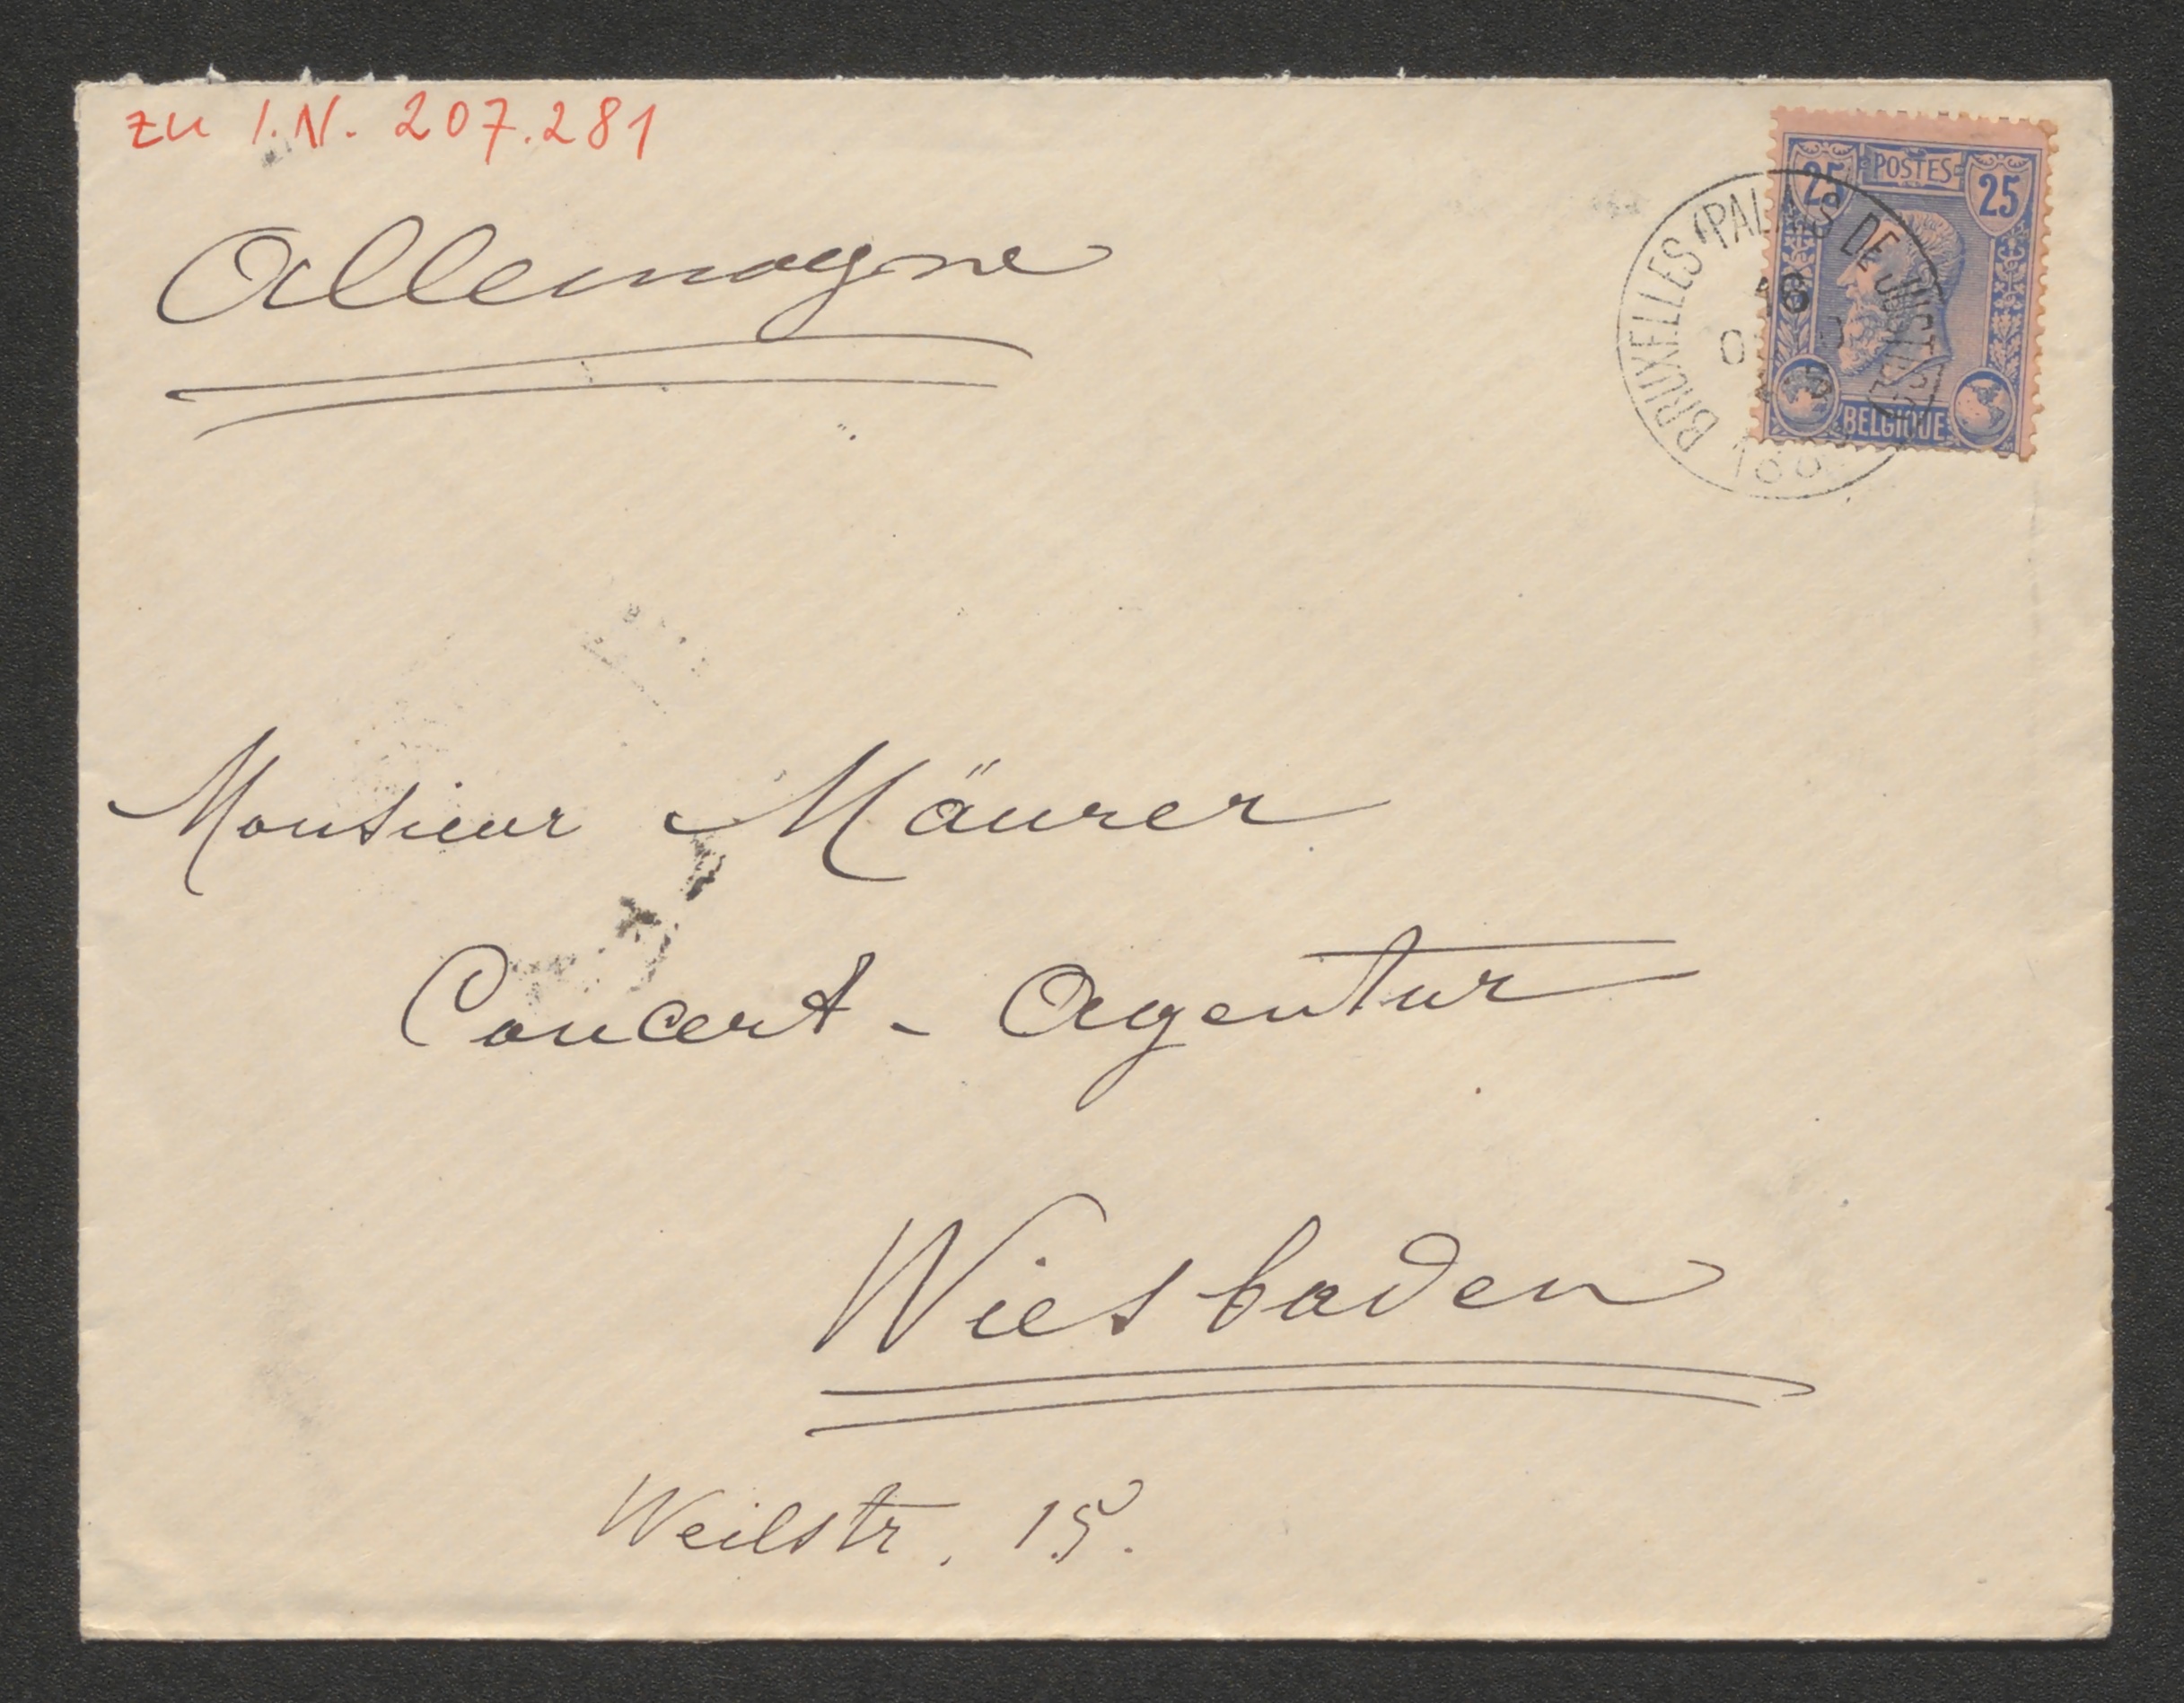 zu I.N. 207.281
Allemagne
25 POSTES 25
BRUXELLES (PALAIS DE JUSTICE)
BELGIQUE
Monsieur Mäurer
Concert-Agentur
Wiesbaden
Weilstr. 15.